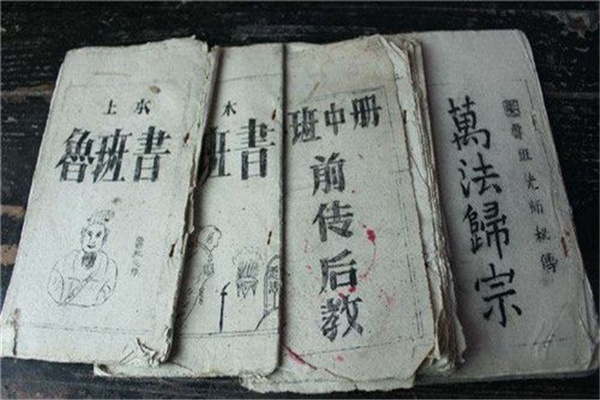 上本
魯班書
木
班書
班中册
前传后教
萬法歸宗
魯班先師秘傳